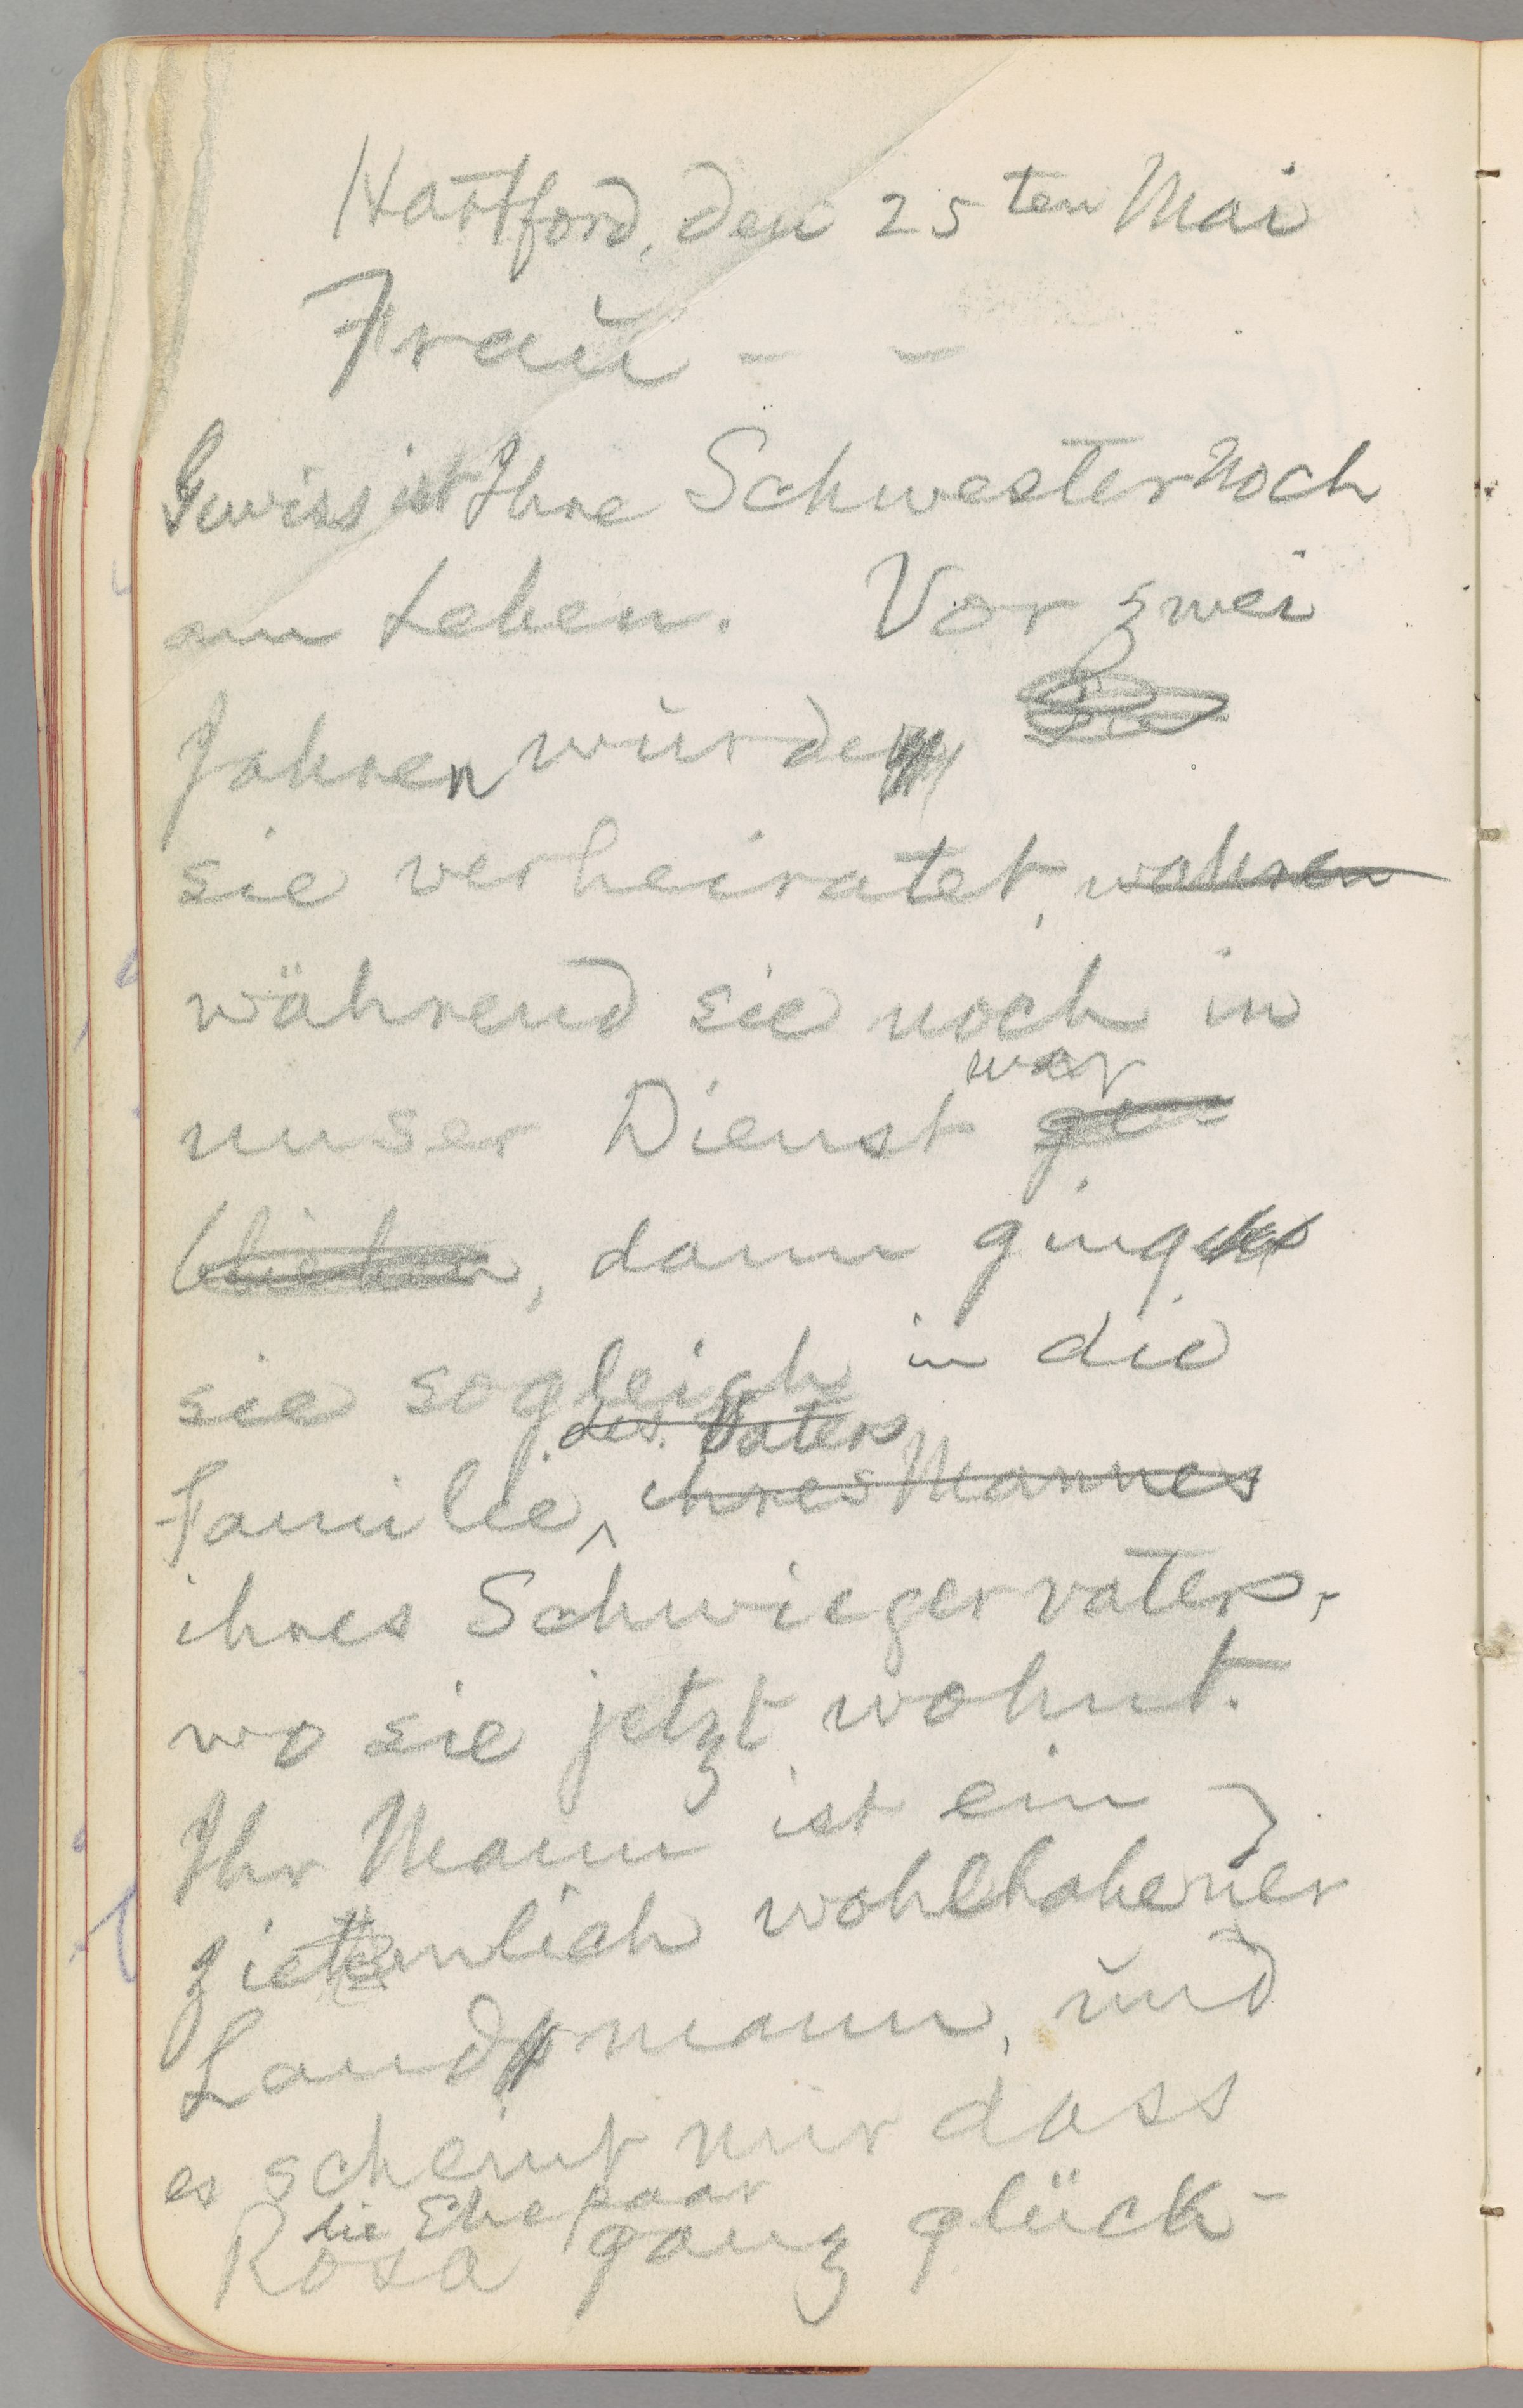 Hartford, den 25ten Mai
Frau - -
Gewiss ist Ihre Schwester noch
am Leben. Vor zwei
Jahren wurde
sie verheiratet, wahren
während sie noch in
war
unser Dienst ge-
blieben, dann ging
sie sogleich in die
des Vaters
Familie ihres Mannes
ihres Schwiegervaters,
wo sie jetzt wohnt.
Ihr Mann ist ein
ziemlich wohlhabener
Landmann, und
es scheint mir dass
die Ehepaar
Rosa ganz glück-